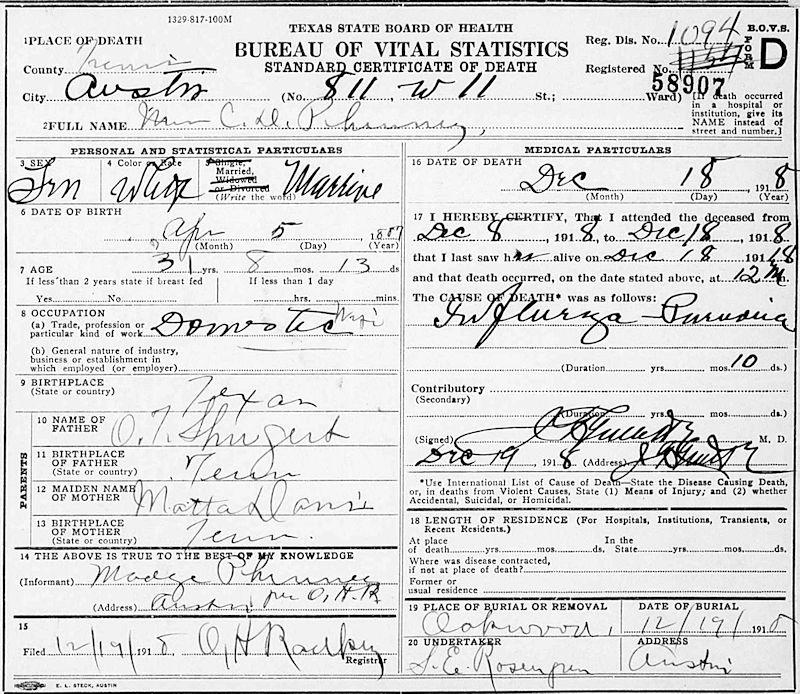 1329-817-100M
TEXAS STATE BOARD OF HEALTH
BUREAU OF VITAL STATISTICS
STANDARD CERTIFICATE OF DEATH
B.O.V.S.
FORM D
Reg. Dis. No. 1094
Registered No.
58907
1 PLACE OF DEATH
County Travis
City Austin (No. 811, W 11 St.; Ward)
[If death occurred in a hospital or institution, give its NAME instead of street and number.]
2 FULL NAME Mrs C. D. Phinney,
PERSONAL AND STATISTICAL PARTICULARS
3 SEX Fem
4 Color or Race White
5 Single, Married, Widowed or Divorced (Write the word) Married
6 DATE OF BIRTH
Apr 5 1887
(Month) (Day) (Year)
7 AGE 31 yrs. 8 mos. 13 ds
If less than 2 years state if breast fed If less than 1 day
Yes No hrs. mins.
8 OCCUPATION
(a) Trade, profession or particular kind of work Domestic
(b) General nature of industry, business or establishment in which employed (or employer)
9 BIRTHPLACE
(State or country) Texas
PARENTS
10 NAME OF FATHER O. T. Shugert
11 BIRTHPLACE OF FATHER
(State or country) Tenn
12 MAIDEN NAME OF MOTHER Matta Davis
13 BIRTHPLACE OF MOTHER
(State or country) Tenn.
14 THE ABOVE IS TRUE TO THE BEST OF MY KNOWLEDGE
(Informant) Madge Phinney
(Address) Austin per O. H. R
15
Filed 12/19/1918 O. H. Radkey
Registrar
E. L. STECK, AUSTIN
MEDICAL PARTICULARS
16 DATE OF DEATH
Dec 18, 1918
(Month) (Day) (Year)
17 I HEREBY CERTIFY, That I attended the deceased from
Dec 8, 1918, to Dec 18, 1918
that I last saw her alive on Dec 18 1918
and that death occurred, on the date stated above, at 12 M m.
The CAUSE OF DEATH* was as follows:
Influenza - Pneumonia
(Duration) yrs. mos. 10 ds.)
Contributory
(Secondary)
(Duration) yrs. mos. ds.)
(Signed) M. D.
Dec 19 1918 (Address)
*Use International List of Cause of Death—State the Disease Causing Death,
or, in deaths from Violent Causes, State (1) Means of Injury; and (2) whether
Accidental, Suicidal, or Homicidal.
18 LENGTH OF RESIDENCE (For Hospitals, Institutions, Transients, or
Recent Residents.)
At place In the
of death yrs. mos. ds. State yrs. mos. ds.
Where was disease contracted,
if not at place of death?
Former or
usual residence
19 PLACE OF BURIAL OR REMOVAL DATE OF BURIAL
Oakwood, 12/19/1918
20 UNDERTAKER ADDRESS
S. E. Rosengren Austin